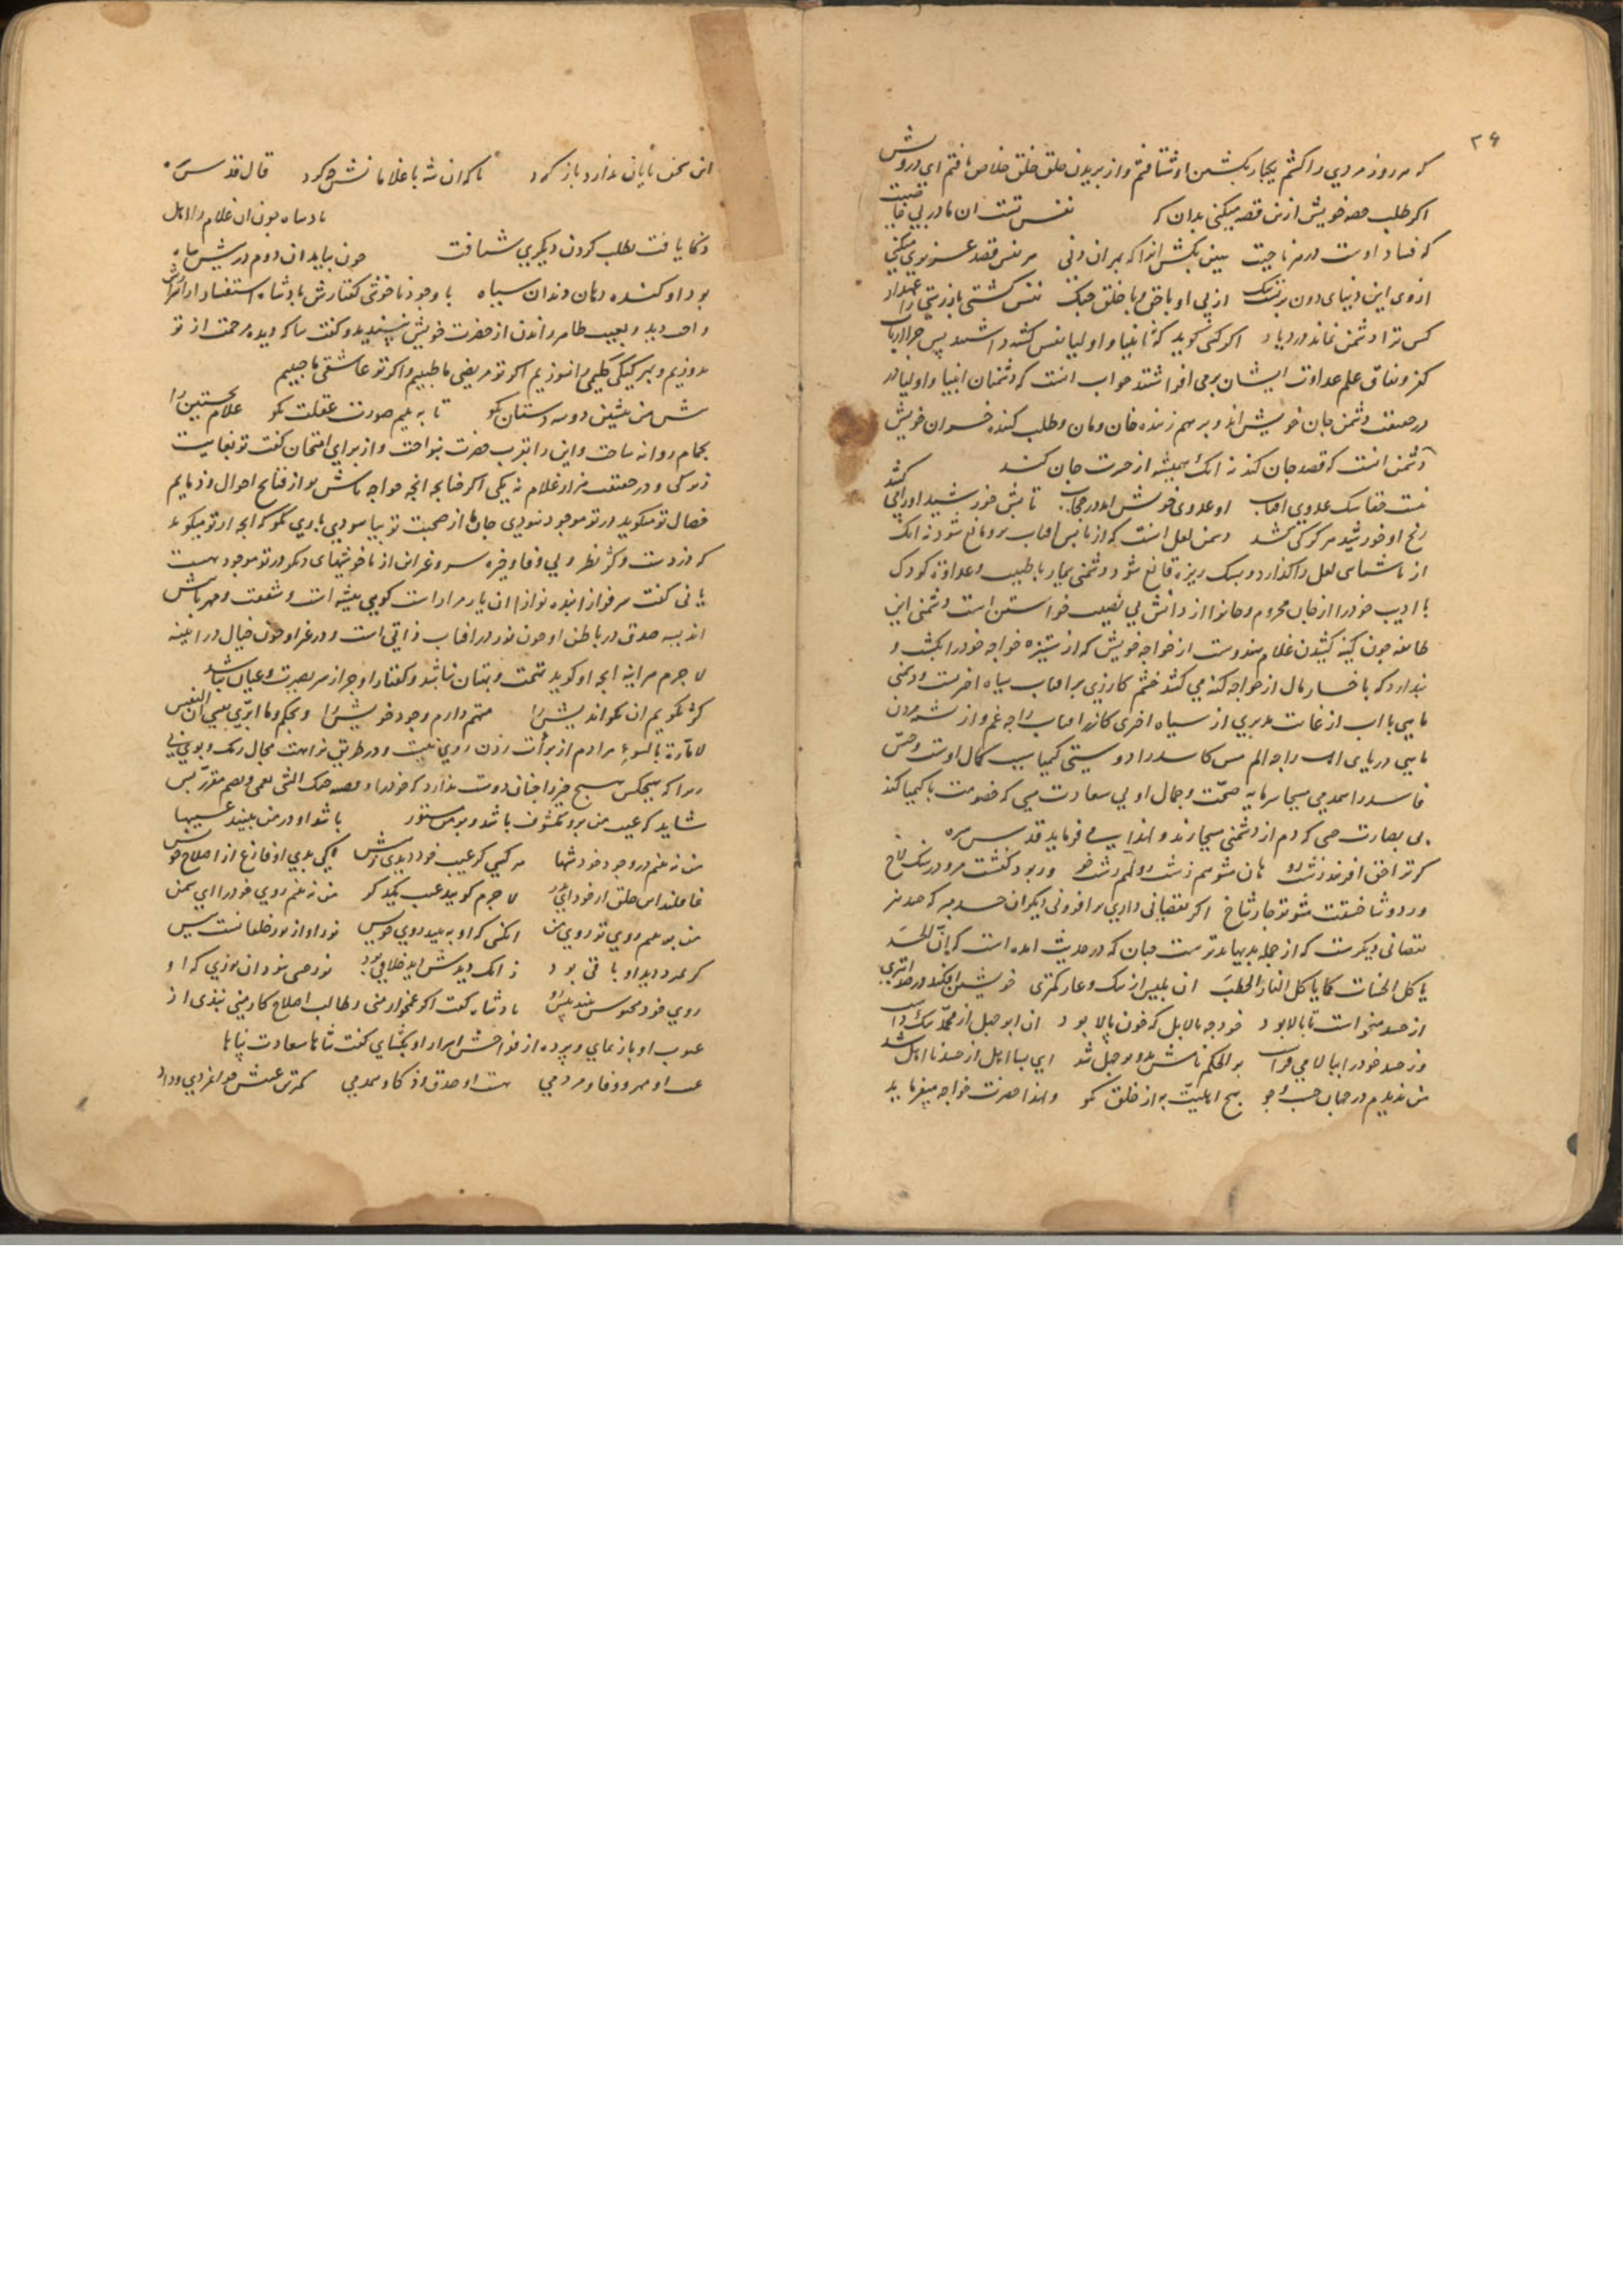 ۲۶
که هر روز مردی را کشم یکبار بکشتن او شتافتم و از بریدن حلق خلق خلاص یافتم ای درویش
اکر طلب حصه خویش ازین قصه میکنی بدان که نفس تست ان مادر بی خاصیت
که فساد اوست در هر ناحیت هین بکش انرا که بهر ان دنی هر نفس قصد عزیزی میکنی
ازوی این دنیای دون بر تست تنک از پی او با حق و با خلق جنک نفس کشتی باز رستی ز اعتذار
کس ترا دشمن نماند در دیار اکر کسی کوید که نه انبیا و اولیا نفس کشته داشتند پس چرا ارباب
کفر و نفاق علم عداوت ایشان برمی افراشتند جواب انست که دشمنان انبیا و اولیا در
در حقیقت دشمن جان خویش اند و برهم زننده خان ومان و طلب کننده خسران خویش
دشمن انست که قصد جان کند نه انک همیشه از حسرت جان کند
نیست خفاشک عدوی افتاب او عدوی خویش امد در حجاب تابش خورشید او را می کشد
رنج او خورشید هرکز کی کشد دشمن لعل انست که از تابش افتاب برو مانع شود نه انک
از تماشای لعل واکذارد و بسنک ریزه قانع شود دشمنی بیمار با طبیب و عداوت کودک
با ادیب خود را از جان محروم و جانرا از دانش بی نصیب خواستن است و دشمنی این
طایفه چون کینه کشیدن غلام هندوست از خواجه خویش که از ستیزه خواجه خود را بکشد و
پندارد که با خسار مال از خواجه کینه می کشد خشم کازری بر افتاب سیاه اخریست و دشمنی
ماهی با اب از غایت مدبری از سیاه اخری کازر افتاب را چه غم و از شدن مردن
ماهی دریای اب را چه الم مس کاسد را دوستی کیمیا سبب کمال اوست و حس
فاسد را همدمی مسیحا سرمایه صحت و جمال او بی سعادت مسی که خصومت با کیمیا کند
بی بصارت حسی که دم از دشمنی مسیحا زند و لهذا می فرماید قدس سره
کر ترا حق افریند زشت رو هان مشو هم زشت رو هم زشت خو ور برد کفشت مرو در سنک لاخ
ور دو شاخستت مشو تو چار شاخ اکر نقصانی داری بر افزونی دیکران حسد مبر که حسد نیز
نقصانی دیکرست که از جمله بدیها بدترست چنان که در حدیث امده است که ان الحسد
یاکل الحسنات کما یاکل النار الحطب ان بلیس از ننک و عار کمتری خویشتن افکند در صد ابتری
از حسد میخواست تا بالا بود خود چه بالا بل که خون پالا بود ان ابوجهل از محمد ننک داشت
وز حسد خود را ببالا می فراشت بو الحکم نامش بدو بوجهل شد ای بسا اهل از حسد نا اهل شد
من ندیدم در جهان جست و جو هیچ اهلیت به از خلق نکو و لهذا حضرت خواجه میفرماید
این سخن پایان ندارد باز کرد تا که ان شه با غلامانش چه کرد قال قدس سره
پادشاه چون ان غلام را اهل
ذکا یافت بطلب کردن دیکری شتافت چون بیامد ان دوم در پیش شاه
بود او کنده دهان دندان سیاه با وجود ناخوشی کفتارش پادشاه استفسار از اسرارش
واجب دید و بعیب ظاهر راندن از حضرت خویش نپسندید و کفت بیا که دیده مرحمت از تو
بدوزیم و بهر کیکی کلیمی را نسوزیم اکر تو مریضی ما طبیبیم و اکر تو عاشقی ما حبیبیم
پیش من بنشین دو سه دستان بکو تا به بینم صورت عقلت نکو غلام نخستین را
بحمام روانه ساخت و این را بقرب حضرت بنواخت و از برای امتحان کفت تو بغایت
زیرکی و در حقیقت هزار غلام نه یکی اکر چنانچه انچه خواجه تاشش تو از قبایح احوال و ذمایم
خصال تو میکوید در تو موجود نبودی جان ها از صحبت تو بیاسودی باری بکو که انچه او از تو میکوید
که دزدست و کژ نظر و بی وفا و خیره سر و غیر این از ناخوشیهای دیکر در تو موجود هست
یا نی کفت سرفرازا بنده نوازا ان یار مرا راست کویی پیشه است و شفقت و مهر باش
اندیشه صدق در باطن او چون نور در افتاب ذاتی است و در غیر او چون خیال در ایینه
لاجرم هر اینه انچه او کوید تهمت و بهتان نباشد و کفتار او جز از سر بصیرت و عیان نباشد
کژ نکویم ان نکو اندیش را متهم دارم وجود خویش را و بحکم وما ابری نفسی ان النفس
لامارة بالسوء مرا دم از برأت زدن روی نیست و در طریق نزاهت مجال رنک و بوی نی
زیرا که هیچکس هیچ چیز را چنان دوست ندارد که خود را و قصه حبک الشئ یعمی و یصم مقرر پس
شاید که عیب من برو مکشوف باشد و بر من مستور باشد او در من ببیند عیبها
من نه بینم در وجود خود شها هر کسی کر عیب خود دیدی ز پیش کی بدی او فارغ از اصلاح خویش
غافلند این خلق از خود ای پدر لاجرم کویند عیب یکدکر من نه بینم روی خود را ای شمن
من به بینم روی تو تو روی من انکسی که او به بیند روی خویش نور او از نور خلقانست بیش
کر بمیرد دید او باقی بود زانک دیدش دید خلاقی بود نور حسی نبود ان نوری که او
روی خود محسوس بیند پیش رو پادشاه کفت اکر غمخوار منی و طالب اصلاح کار منی نبذی از
عیوب او باز نمای و پرده از فواحش اسرار او بکشای کفت شاها سعادت پناها
عیب او مهر و وفا و مردمی هست او صدق و ذکا و همدمی کمترین عیبش جوانمردی و داد